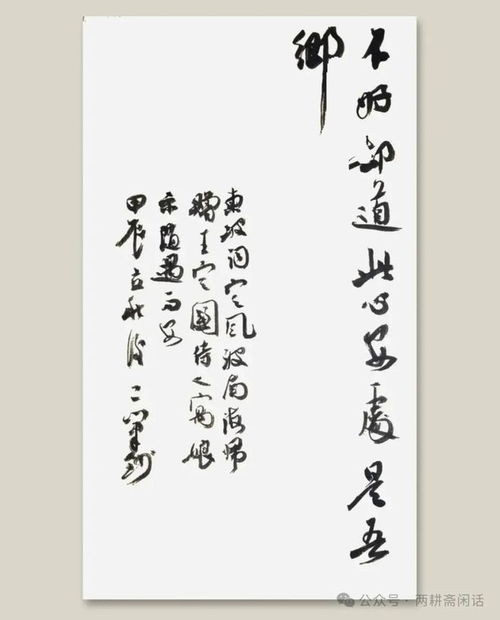 不好却道此心安處是吾
鄉
東坡詞定風波南海歸
贈王定國侍人寓娘
隨遇而安
甲辰立秋後二
公众号·两耕斋闲话